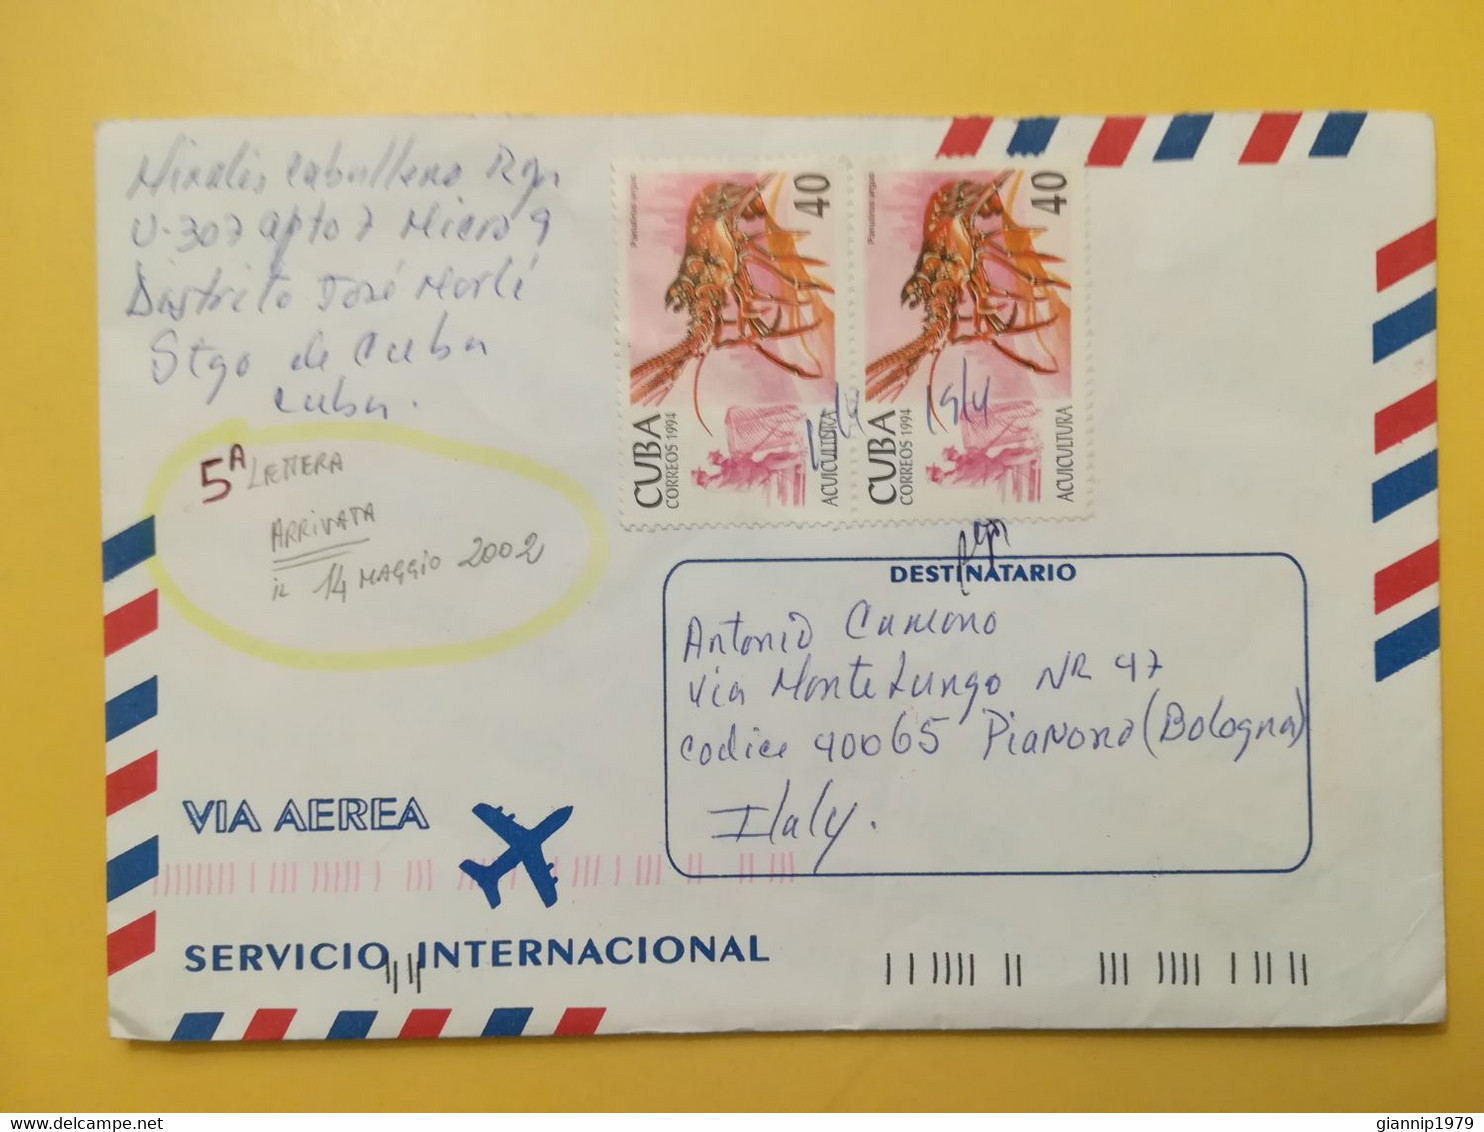 Miralis Caballero Rgn
U-307 apto 7 Micro 9
Distrito José Martí
Stgo de Cuba
Cuba.
5A LETTERA
ARRIVATA
IL 14 MAGGIO 2002
Panulirus argus
40
CUBA
CORREOS 1994
ACUICULTURA
Panulirus argus
40
CUBA
CORREOS 1994
ACUICULTURA
19/4
DESTINATARIO
Antonio
Via Monte Lungo NR 47
Codice 40065 Pianoro (Bologna)
Italy.
VIA AEREA
SERVICIO INTERNACIONAL
giannip1979